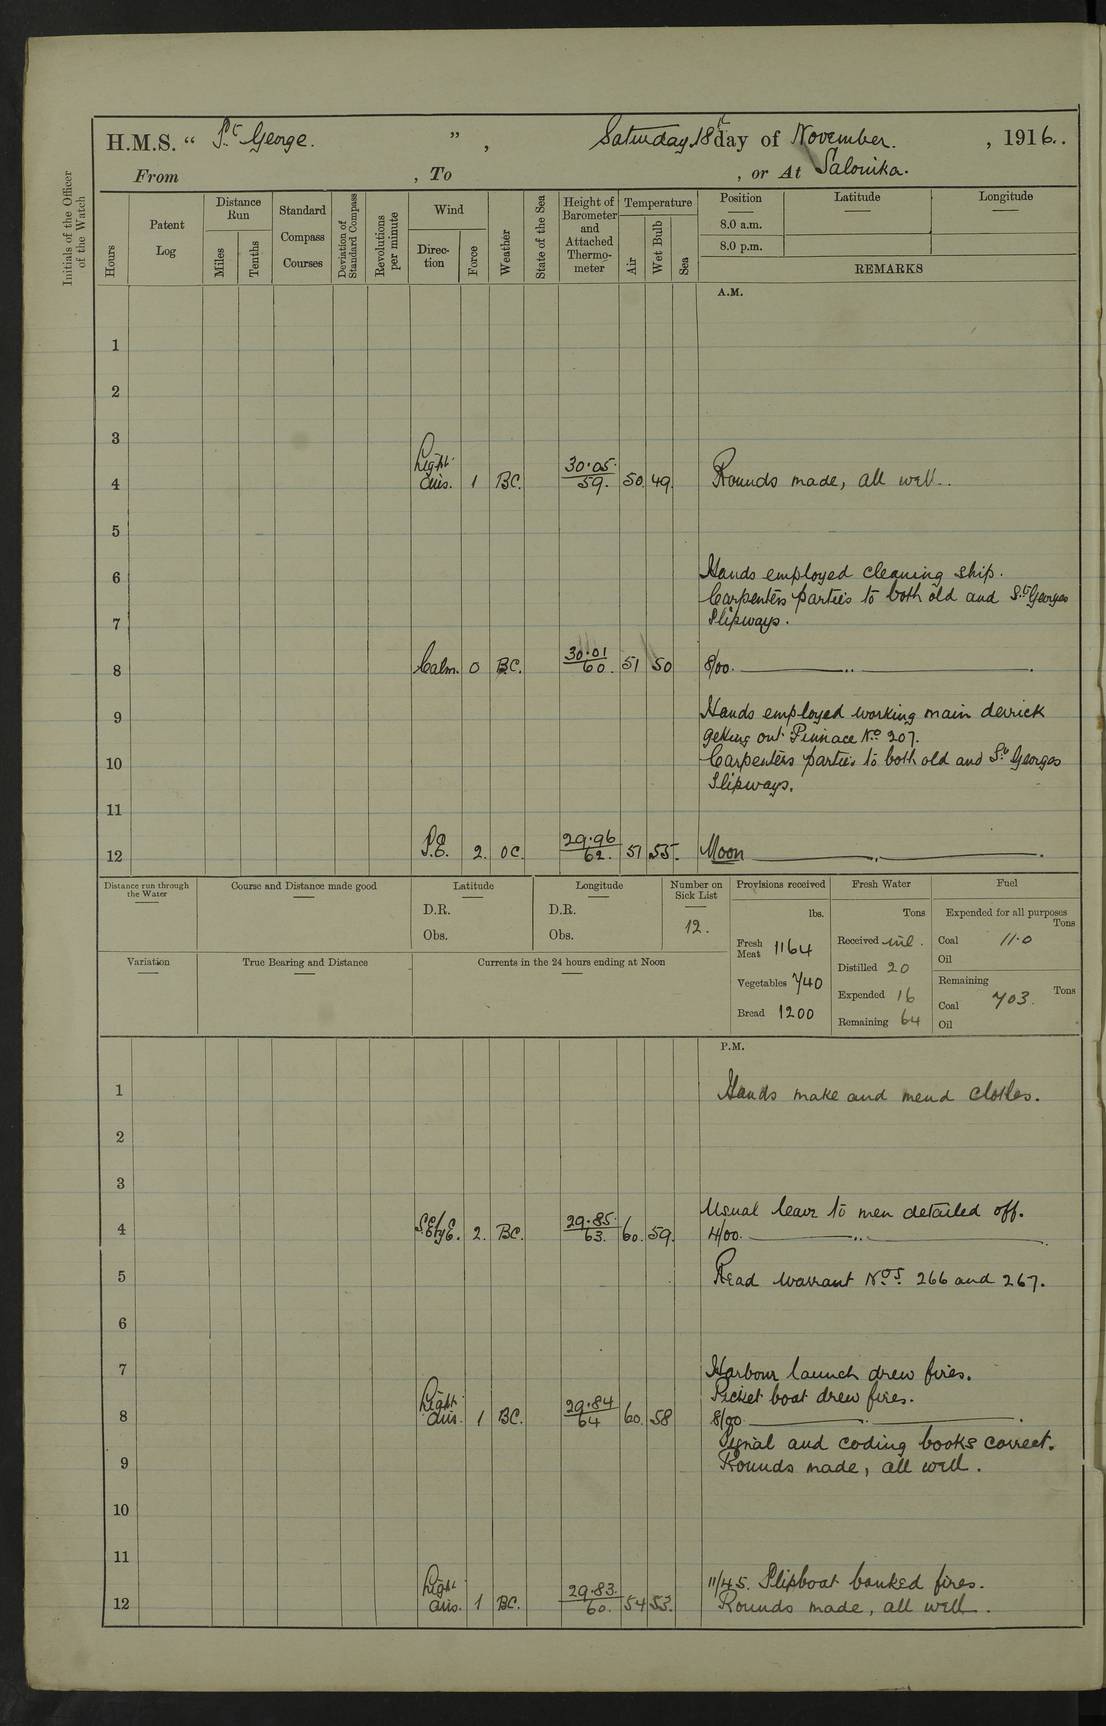 H.M.S. “ St. George. ” , Saturday 18th day of November. , 1916..
From , To , or At Salonika.
Initials of the Officer of the Watch
Hours
Patent Log
Distance Run
Miles
Tenths
Standard Compass Courses
Deviation of Standard Compass
Revolutions per minute
Wind
Direction
Force
Weather
State of the Sea
Height of Barometer and Attached Thermometer
Temperature
Air
Wet Bulb
Sea
Position Latitude Longitude
8.0 a.m.
8.0 p.m.
REMARKS
A.M.
1
2
3
4 Light airs. 1 BC. 30.05. 59. 50. 49. Rounds made, all well.
5
6 Hands employed cleaning ship.
Carpenters parties to both old and St. Georges
7 Slipways.
8 Calm. 0 BC. 30.01 60. 51 50 8/00.
9 Hands employed working main derrick
getting out Pinnace No. 207.
10 Carpenters parties to both old and St. Georges
Slipways.
11
12 S.E. 2. OC. 29.96 62. 51 55. Noon
Distance run through the Water
Course and Distance made good
Latitude
D.R.
Obs.
Longitude
D.R.
Obs.
Number on Sick List
12.
Provisions received
lbs.
Fresh Meat 1164
Vegetables 740
Bread 1200
Fresh Water
Tons
Received nil.
Distilled 20
Expended 16
Remaining 64
Fuel
Expended for all purposes
Tons
Coal 11.0
Oil
Remaining
Tons
Coal 703.
Oil
Variation
True Bearing and Distance
Currents in the 24 hours ending at Noon
P.M.
1 Hands make and mend clothes.
2
3
Usual leave to men detailed off.
4 SEbyE. 2. BC. 29.85. 63. 60. 59. 4/00.
5 Read warrant Nos. 266 and 267.
6
7 Harbour launch drew fires.
Picket boat drew fires.
8 Light airs. 1 BC. 29.84 64 60. 58 8/00
Signal and coding books correct.
9 Rounds made, all well.
10
11
11/45. Slipboat banked fires.
12 Light airs. 1 BC. 29.83. 60. 54 53. Rounds made, all well.